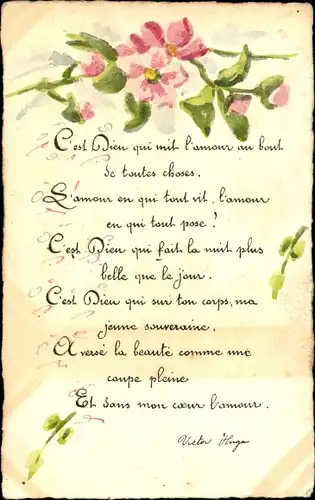 C'est Dieu qui mit l'amour au bout
de toutes choses.
L'amour en qui tout vit, l'amour
en qui tout pose !
C'est Dieu qui fait la nuit plus
belle que le jour.
C'est Dieu qui sur ton corps, ma
jeune souveraine,
A versé la beauté comme une
coupe pleine
Et dans mon cœur l'amour.
Victor Hugo